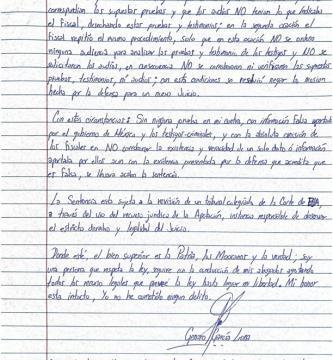 corroboraban los supuestos pruebas y que los audios NO tenían lo que indicaba
el Fiscal, desechando estas pruebas y testimonios; en la segunda ocasión el
Fiscal repitió el mismo procedimiento, solo que en esta ocasión NO se ordenó
ninguna audiencia para analizar las pruebas y testimonio de los testigos y NO se
solicitaron los audios, en consecuencia NO se corroboraron ni verificaron las supuestas
pruebas, testimonios, ni audios; con estas condiciones se resolvió negar la moción
hecha por la defensa para un nuevo Juicio.
Con estas circunstancias: Sin ninguna prueba en mi contra, con información falsa aportada
por el gobierno de México y los testigos-criminales, y con la absoluta omisión de
los fiscales en NO corroborar la existencia y veracidad de un solo dato o información
aportada por ellos aun con la existencia presentada por la defensa que acredita que
es Falsa, se llevará acabo la sentencia.
La Sentencia está sujeta a la revisión de un tribunal colegiado de la Corte de EUA,
a través del uso del recurso jurídico de la Apelación, instancia responsable de observar
el estricto derecho y legalidad del Juicio.
Donde esté, el bien superior es la Patria, los Mexicanos y la verdad; soy
una persona que respeta la ley, seguiré en la conducción de mis abogados agotando
todos los recursos legales que provee la ley hasta lograr mi libertad. Mi honor
esta intacto, Yo no he cometido ningun delito.
Genaro García Luna